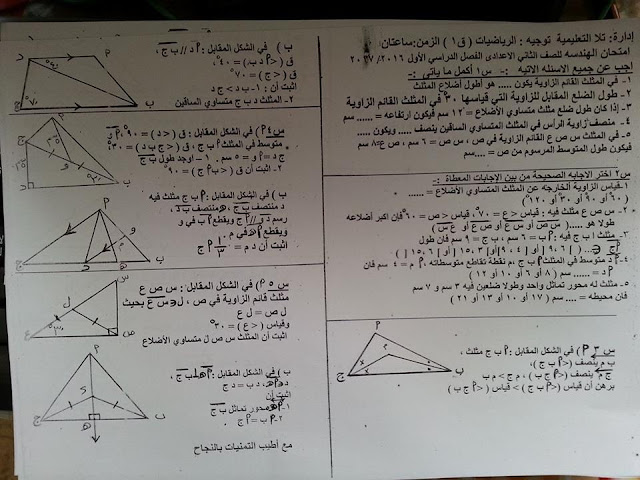 إدارة: تلا التعليمية توجيه: الرياضيات ( ق١ ) الزمن:ساعتان
امتحان الهندسه للصف الثاني الاعدادى الفصل الدراسي الأول ٢٠١٦/
أجب عن جميع الاسئله الاتيه :- س١ أكمل ما ياتى :-
١- في المثلث القائم الزاوية يكون ..... هو أطول أضلاع المثلث
٢- طول الضلع المقابل للزاوية التي قياسها ٣٠° في المثلث القائم الزاوية
٣- إذا كان طول ضلع مثلث متساوي الأضلاع = ١٢ سم فيكون ارتفاعه = ...... سم
٤- منصف زاوية الرأس في المثلث المتساوي الساقين ينصف ..... ويكون .....
٥- في المثلث س ص ع القائم الزاوية في ص ، س ص = ٦ سم ، ص ع=٨ سم
فيكون طول المتوسط المرسوم من ص = .... سم
س٢ اختر الاجابه الصحيحة من بين الإجابات المعطاة :-
١- قياس الزاوية الخارجه عن المثلث المتساوي الأضلاع = ......
( ٦٠ أو ٩٠ أو ٣٠ أو ١٢٠ )
٢- س ص ع مثلث فيه : قياس < ع = ٧٠° ، قياس < ص = ٦٠° فإن اكبر أضلاعه
طولا هو ..... ( س ص أو س ع أو ص ع
٣- مثلث ا ب ج فيه : أ ب = ٦ سم ، ب ج = ٩ سم فإن طول
٤- أ د متوسط في المثلث أ ب ج ،م نقطة تقاطع متوسطاته ، أ م = ٤ سم فان
أ د = ...... سم ( ٨ أو ٦ أو ١٠ أو ١٢ )
٥- مثلث له محور تماثل واحد وطولا ضلعين فيه ٣ سم و ٧ سم
فان محيطه = ..... سم ( ١٧ أو ١٠ أو ١٣ أو ٢١ )
س ٣ أ ) في الشكل المقابل : أ ب ج مثلث ،
ب م ينصف (< أ ب ج )
ج م ينصف (< أ ج ب ) ، م ج > م ب
برهن أن قياس (< أ ب ج ) > قياس (< أ ج ب )
ب ) في الشكل المقابل : أ د // ب ج ،
ق ( < ج ) = ٧٠°
اثبت أن : ١- ب د > ج د
٢- المثلث د ب ج متساوي الساقين
س٤ أ ) في الشكل المقابل : ق ( < د ) = ٩٠° ،
متوسط في المثلث أ ب ج ، ق ( < ج ) = ٣٠° ،
ج د = ٥ سم . ١- اوجد طول ب ج
٢- اثبت أن ق ( < أ ب ج ) = ٩٠°
ب ) في الشكل المقابل : أ ب ج مثلث فيه
د منتصف ب ج ، هـ منتصف ب د ،
رسم د و // ج أ ويقطع أ ب في و
ويقطع أ هـ في م .
س ٥ أ ) في الشكل المقابل : س ص ع
مثلث قائم الزاوية في ص ، ل ∈ س ع بحيث
ل ص = ل ع
وقياس ( < ع ) = ٣٠°
اثبت أن المثلث س ص ل متساوي الأضلاع
ب ) في الشكل المقابل : أ هـ ⊥ ب ج ،
د ∈ أ هـ ، د ب = د ج
اثبت أن
١- أ هـ محور تماثل ب ج
٢- أ ب = أ ج
مع أطيب التمنيات بالنجاح